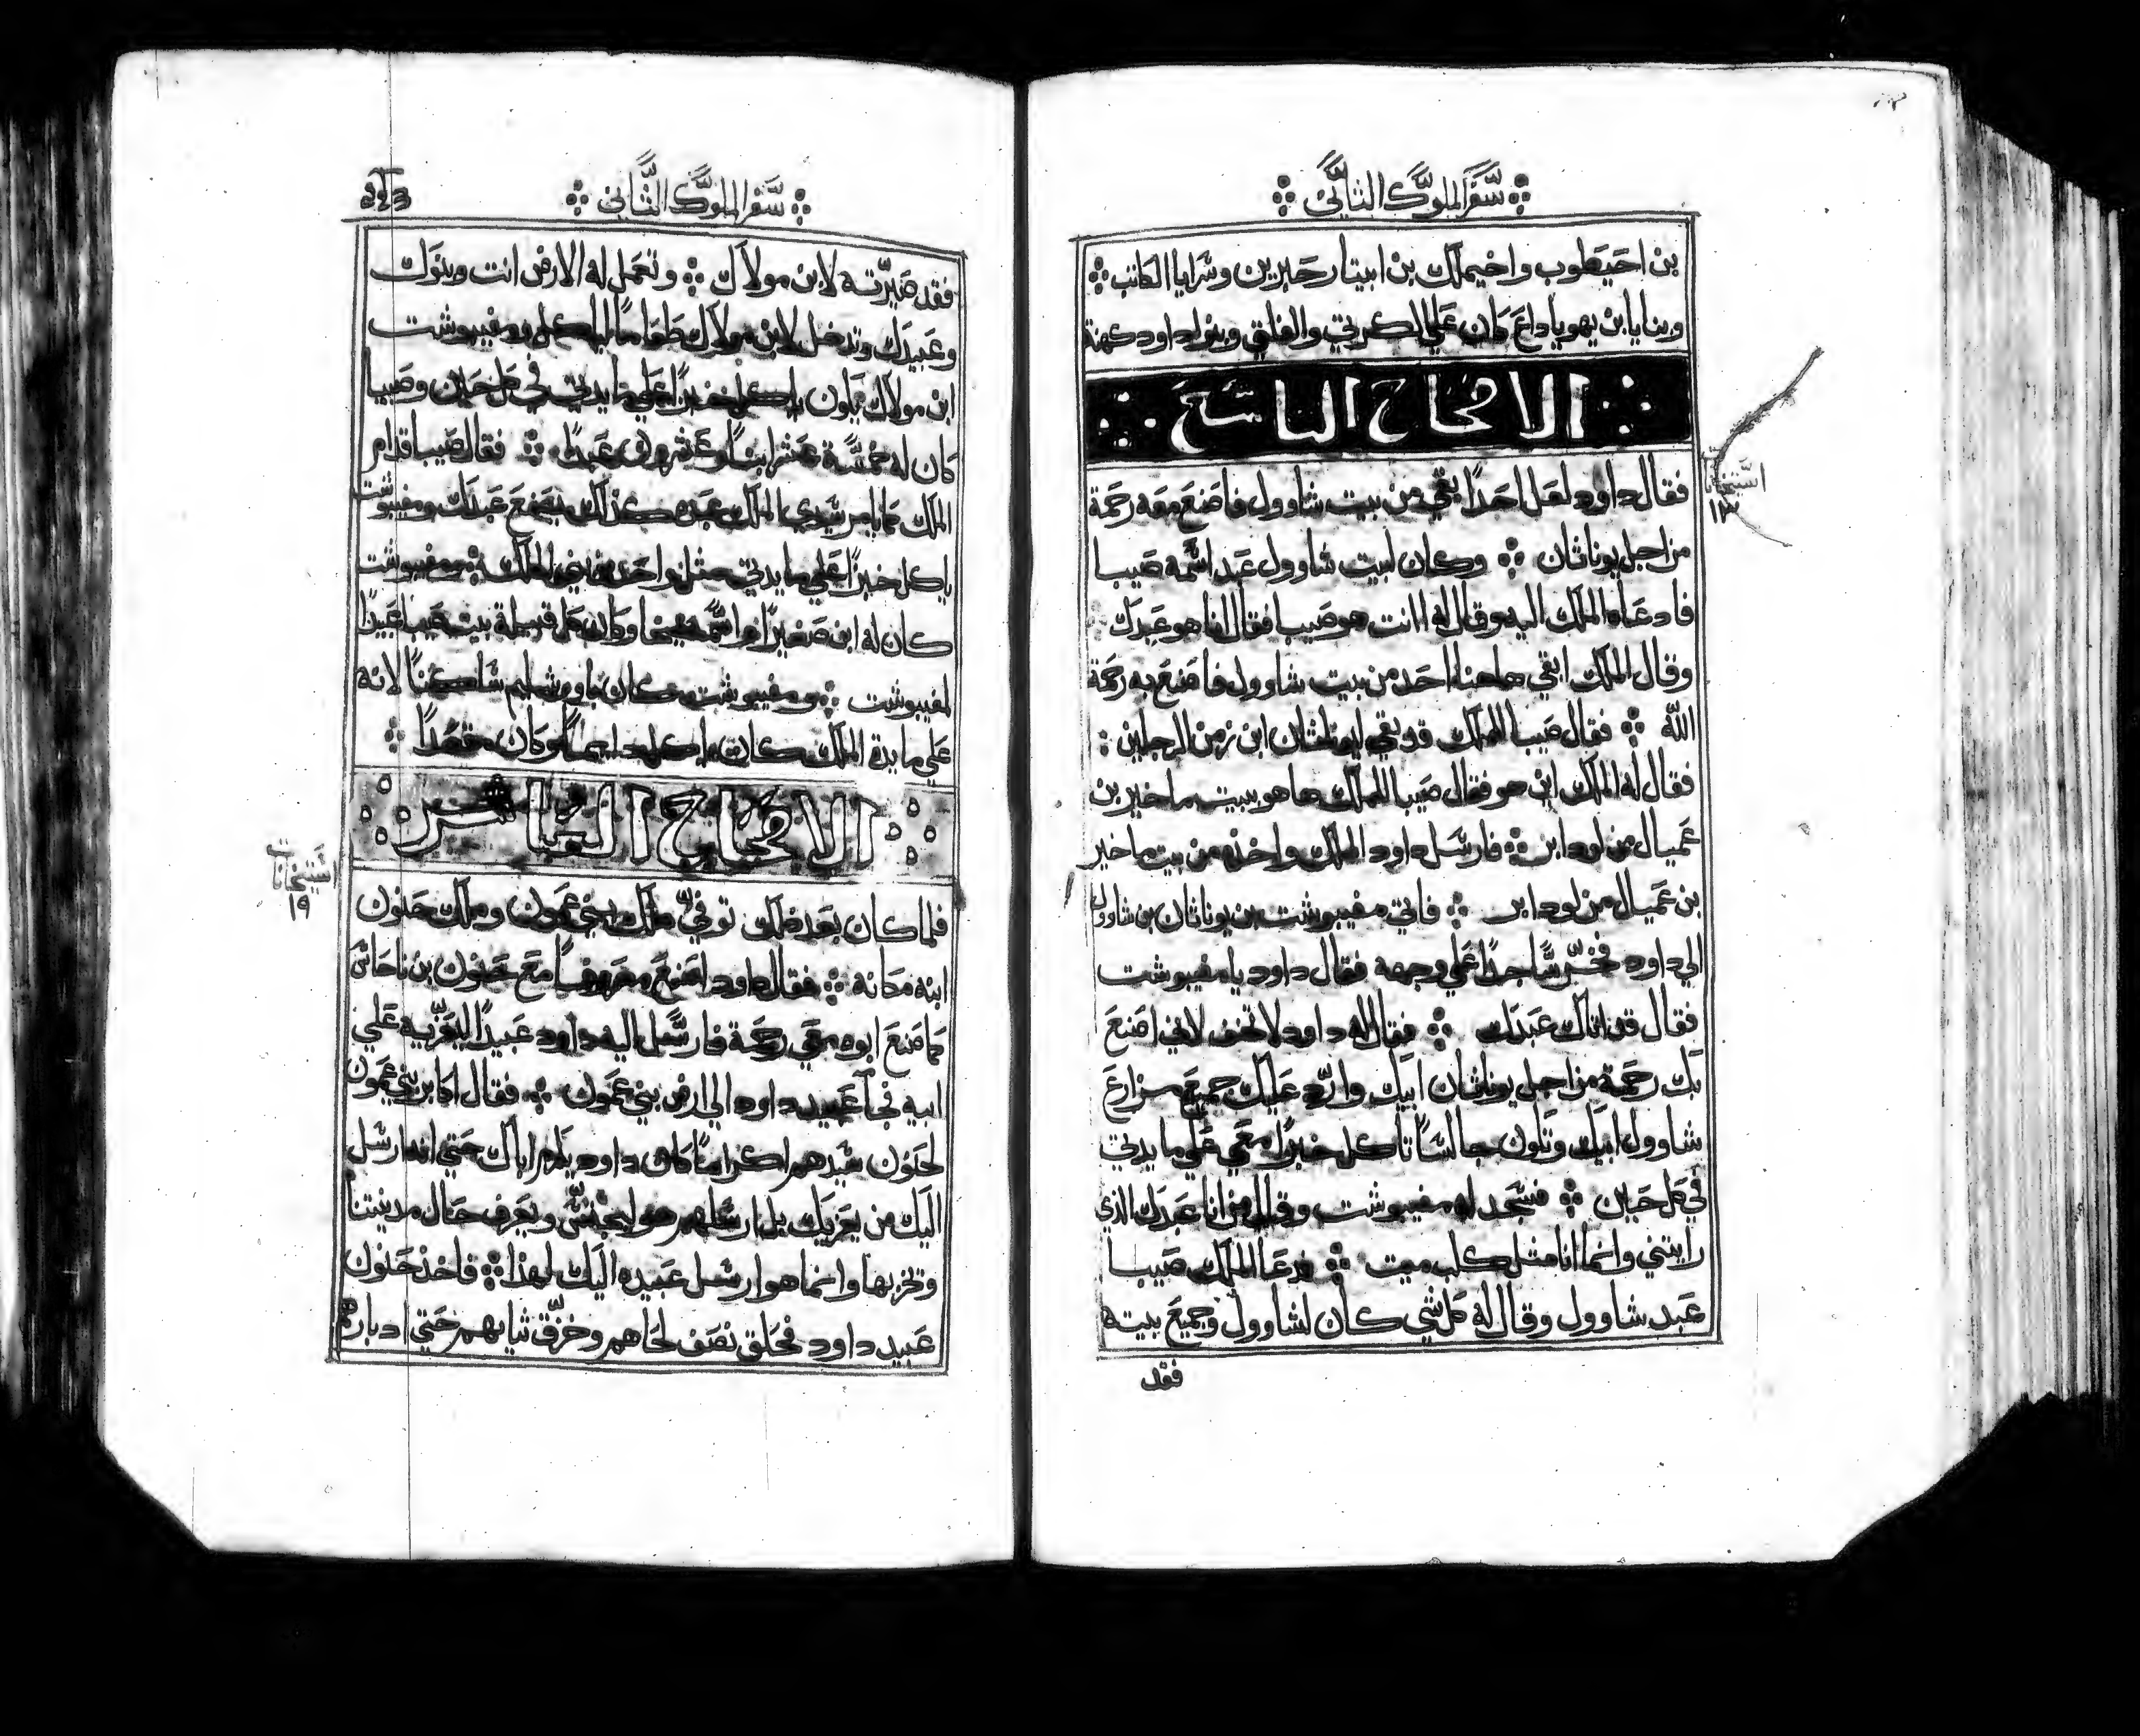 سفر الملوك الثاني
بن احيطوب واخيملك بن ابيتار حبرين وشرايا الكاتب
وبنايا ابن يهوياداع كان علي الكريتي والفلتي وبنو داود كهنة
الاصحاح التاسع
فقال داود لعل احدًا بقي من بيت شاوول فاصنع معه رحمة
من اجل يوناثان وكان لبيت شاوول عبد اسمه صيبا
فادعاه الملك اليه وقال له اانت هو صيبا فقال انا هو عبدك
وقال الملك ابقي هاهنا احد من بيت شاوول فاصنع به رحمة
الله فقال صيبا للملك قد بقي ليوناثان ابن زمن الرجلين
فقال له الملك اين هو فقال صيبا للملك هاهو ببيت ماخير بن
عميال من لودابر فارسل داود الملك واخذه من بيت ماخير
بن عميال من لودابر فاتي مفيبوشت بن يوناثان بن شاوول
الي داود فخرّ ساجدًا علي وجهه فقال داود يا مفيبوشت
فقال قد اتاك عبدك فقال له داود لا تخف لاني اصنع
بك رحمة من اجل يوناثان ابيك واردّ عليك جميع مزارع
شاوول ابيك وتكون جالسًا تاكل خبزًا معي علي مايدتي
في كل حين فسجد له مفيبوشت وقال من انا عبدك الذي
رايتني وانما انا مثل كلب ميت فدعا الملك صيبا
عبد شاوول وقال له كل شي كان لشاوول وجميع بيته
فقد
استيخانا
١٣
سفر الملوك الثاني
فقد صيرّته لابن مولاك وتعمل له الارض انت وبنوك
وعبيدك وتدخل لابن مولاك طعامًا لياكل ومفيبوشت
ابن مولاك يكون ياكل خبزًا علي مايدتي في كل حين وصيبا
كان له خمسة عشر ابنًا وعشرون عبدًا فقال صيبا قدام
الملك كما يامر سيدي الملك عبده كذلك يصنع عبدك ومفيبوشت
ياكل خبزًا علي مايدتي مثل واحد من بني الملك ومفيبوشت
كان له ابن صغير اسمه ميخا وكان كل قبيلة بيت صيبا عبيدًا
لمفيبوشت ومفيبوشت كان باورشليم ساكنًا لانه
علي مايدة الملك كان ياكل دايمًا وكان مقعدًا
الاصحاح العاشر
فلما كان بعد ذلك توفيّ ملك بني عمون وملك حنون
ابنه مكانه فقال داود اصنع معروفًا مع حنون بن ناحاش
كما صنع ابوه معي رحمة فارسل اليه داود عبيدًا ليعزّيه علي
ابيه فجا عبيد داود الي ارض بني عمون فقال اكابر بني عمون
لحنون سيدهم اكرامًا كان داود يكرم اباك حتي انه ارسل
اليك من يعزيك بل ارسلهم هو ليجسّ ويعرف حال مدينتنا
وتخربها وانما هو ارسل عبيده اليك لهذا فاخذ حنون
عبيد داود فحلق نصف لحاهم وخزّق ثيابهم حتي ادبارهم
ستيخانات
١٩